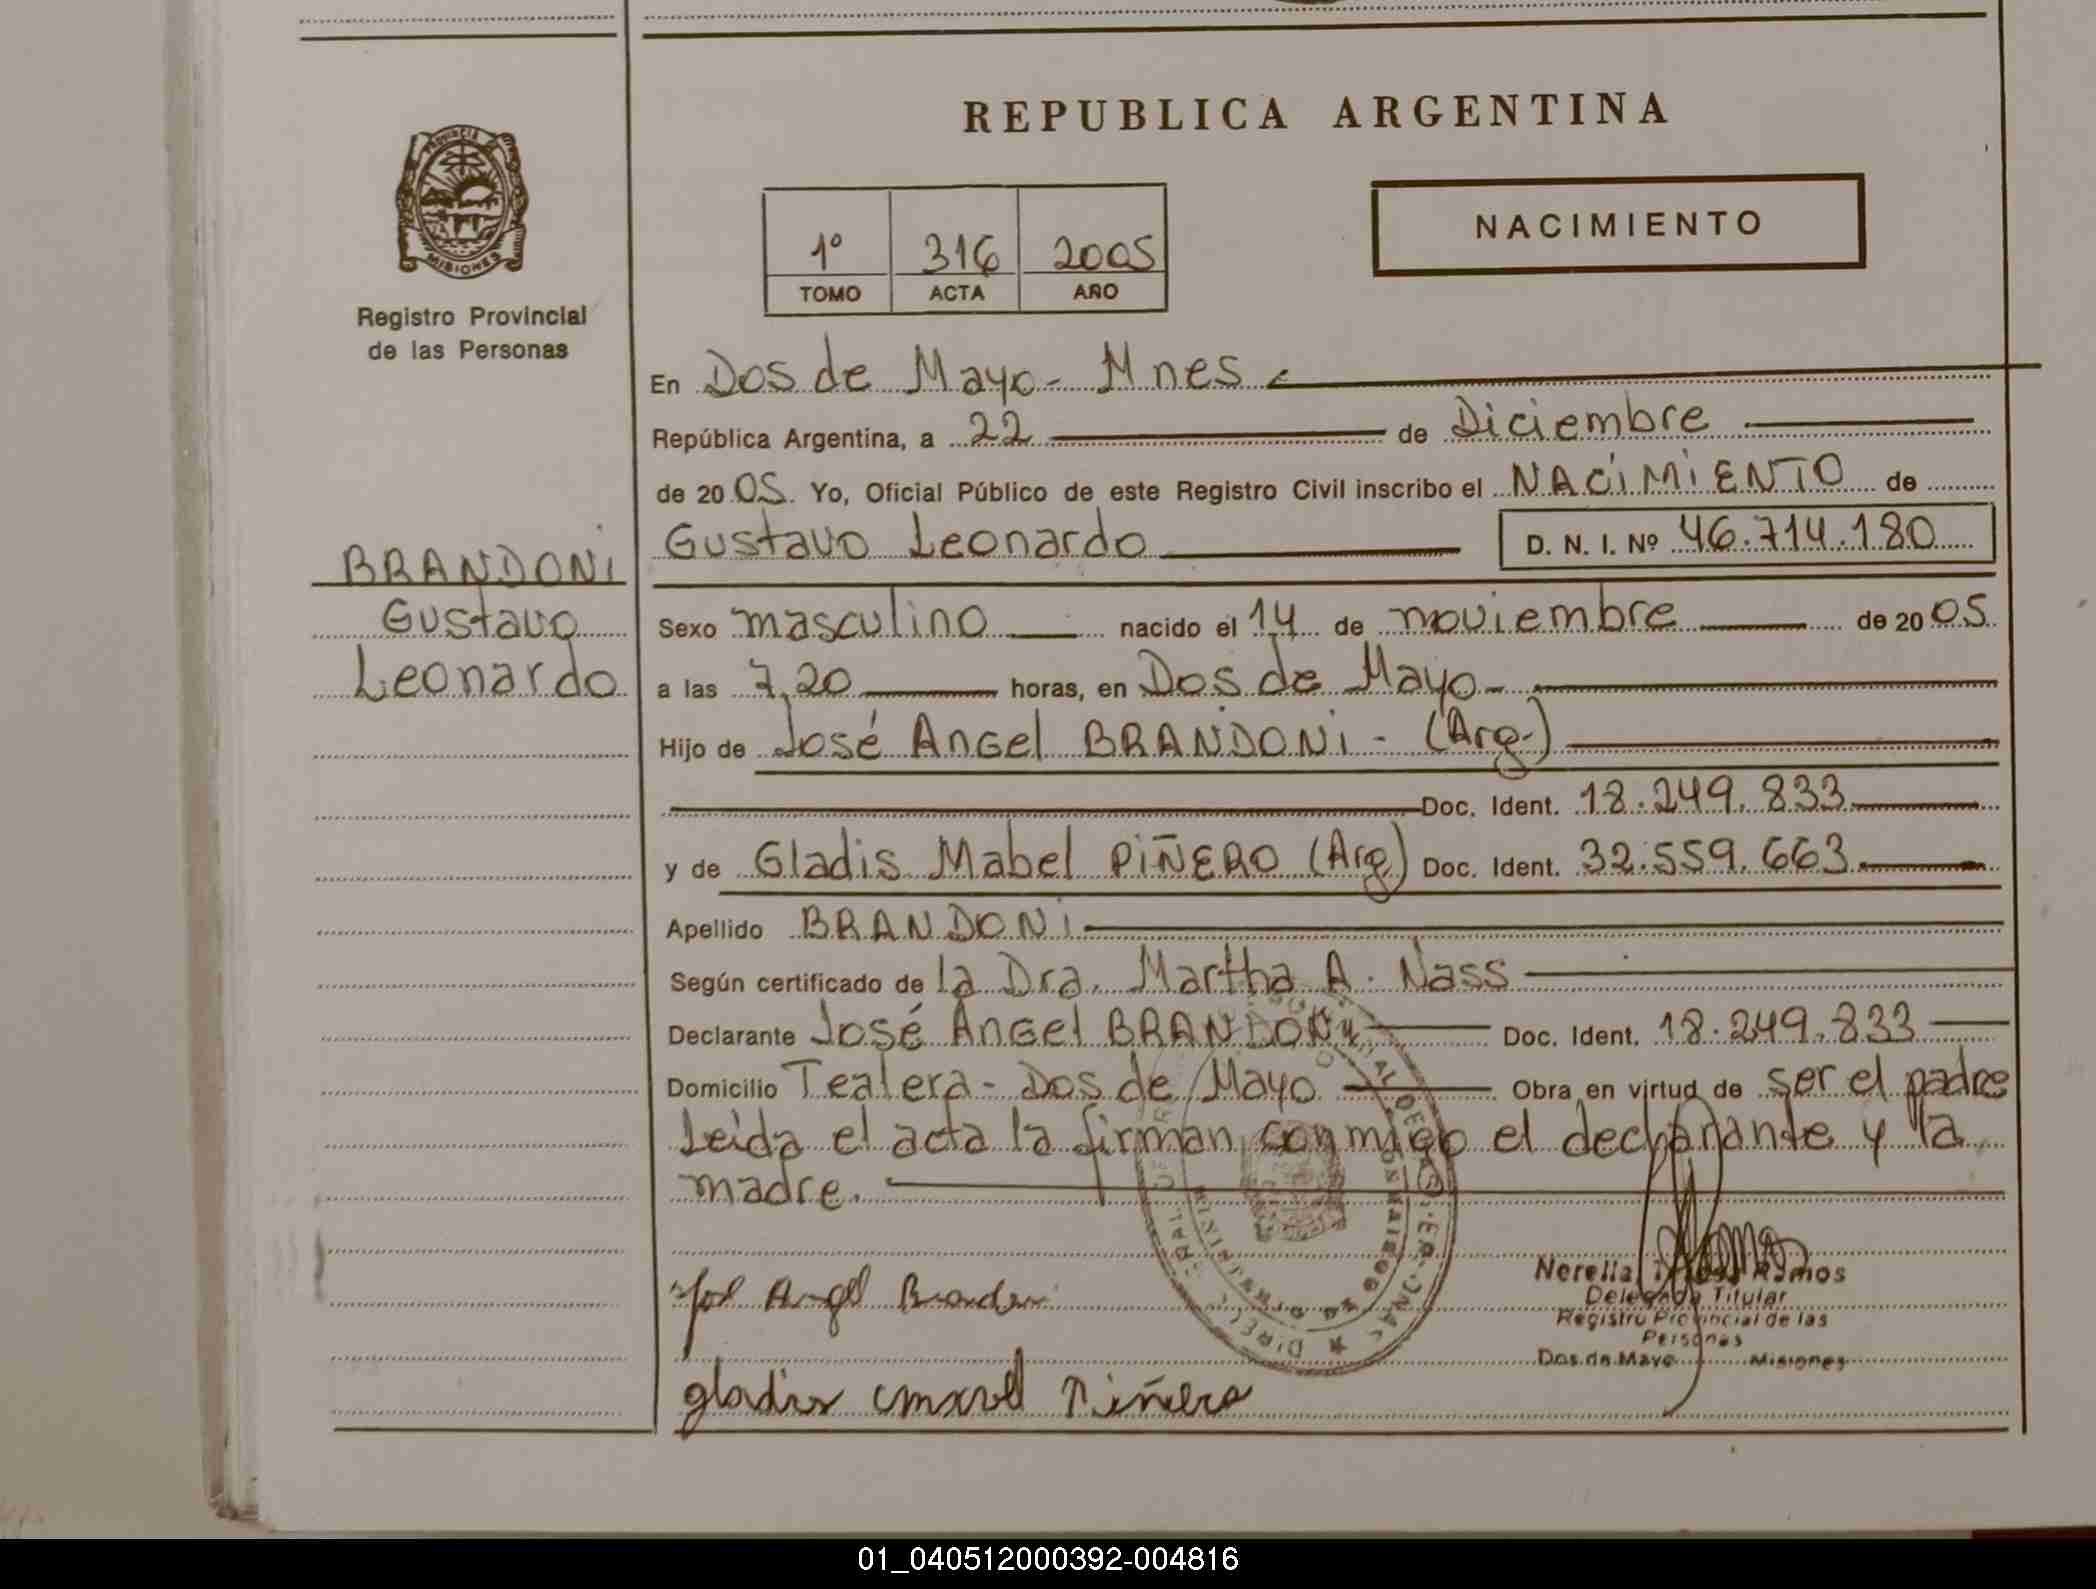 REPUBLICA ARGENTINA
PROVINCIA DE
MISIONES
Registro Provincial
de las Personas
NACIMIENTO
1º 316 2005
TOMO ACTA AÑO
En Dos de Mayo - Mnes
República Argentina, a 22 de Diciembre
de 2005. Yo, Oficial Público de este Registro Civil inscribo el NACIMIENTO de
Gustavo Leonardo D. N. I. Nº 46.714.180
BRANDONI
Gustavo
Leonardo
Sexo masculino nacido el 14 de noviembre de 2005
a las 7,20 horas, en Dos de Mayo-
Hijo de José Angel BRANDONI - (Arg.)
Doc. Ident. 18.249.833
y de Gladis Mabel PIÑERO (Arg) Doc. Ident. 32.559.663
Apellido BRANDONI
Según certificado de la Dra. Martha A. Nass
Declarante José Angel BRANDONI Doc. Ident. 18.249.833
Domicilio Tealera - Dos de Mayo Obra en virtud de ser el padre
Leida el acta la firman conmigo el declarante y la
madre.
José Angel Brandoni
gladis mavel Piñero
Norelia Ramos
Delegada Titular
Registro Provincial de las
Personas
Dos de Mayo Misiones
01_040512000392-004816